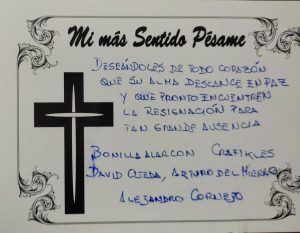 Mi más Sentido Pésame
DESEÁNDOLES DE TODO CORAZÓN
QUE SU ALMA DESCANCE EN PAZ
Y QUE PRONTO ENCUENTREN
LA RESIGNACIÓN PARA
TAN GRANDE AUSENCIA
BONILLA ALARCON
DAVID OJEDA, ARTURO DEL HIERRO
ALEJANDRO CORNEJO